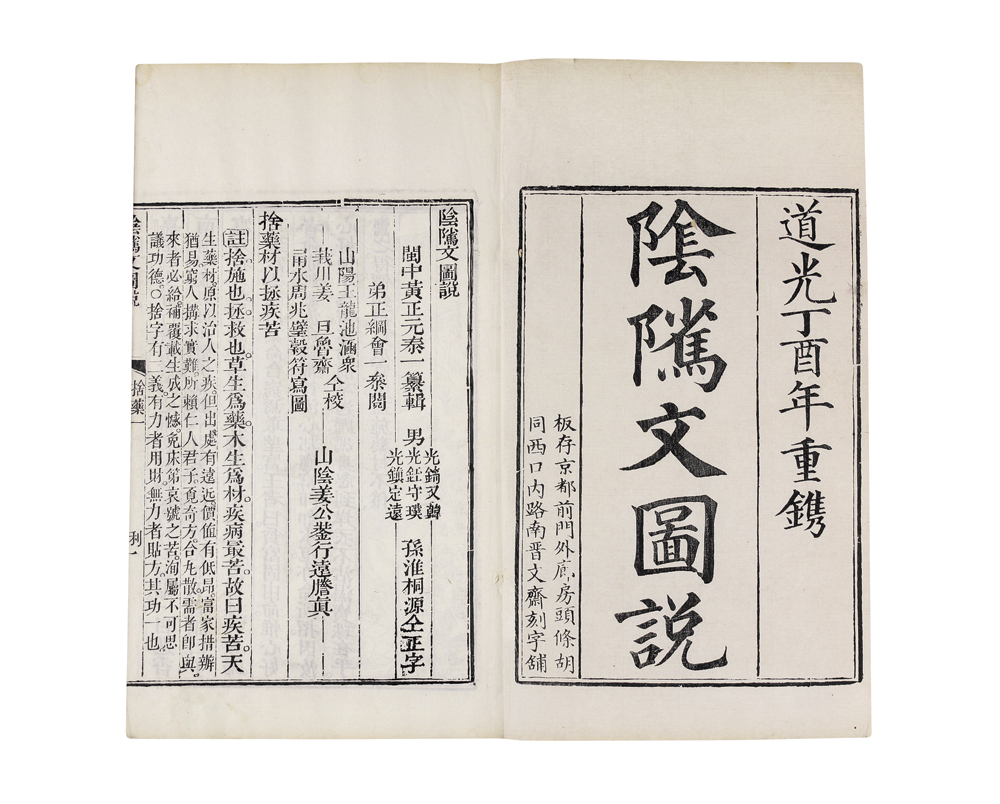 道光丁酉年重鐫
陰隲文圖說
板存京都前門外廊房頭條胡
同西口內路南晋文齋刻字舖
陰隲文圖說
閩中黃正元泰一纂輯 男光鎬又韓 光鈺守璞 光鎮定遠 孫淮桐源仝正字
弟正綱會一叅閱
山陽王龍池涵衆
莪川姜旦魯齋仝校 山陰姜公鋆行遠謄眞
雨水周兆璧毅符寫圖
捨藥材以拯疾苦
註捨施也。拯救也。草生爲藥。木生爲材。疾病最苦。故曰疾苦。天
生藥材。原以治人之疾。但出處有遠近。價值有低昂。富家措辦
猶易。窮人搆求實難。所賴仁人君子。覓奇方。合丸散。需者卽與。
來者必給。補覆載生成之憾。免床笫哀號之苦。洵屬不可思
議功德。○捨字有二義。有力者用財。無力者貼方。其功一也
陰隲文圖說 捨藥 一 利一